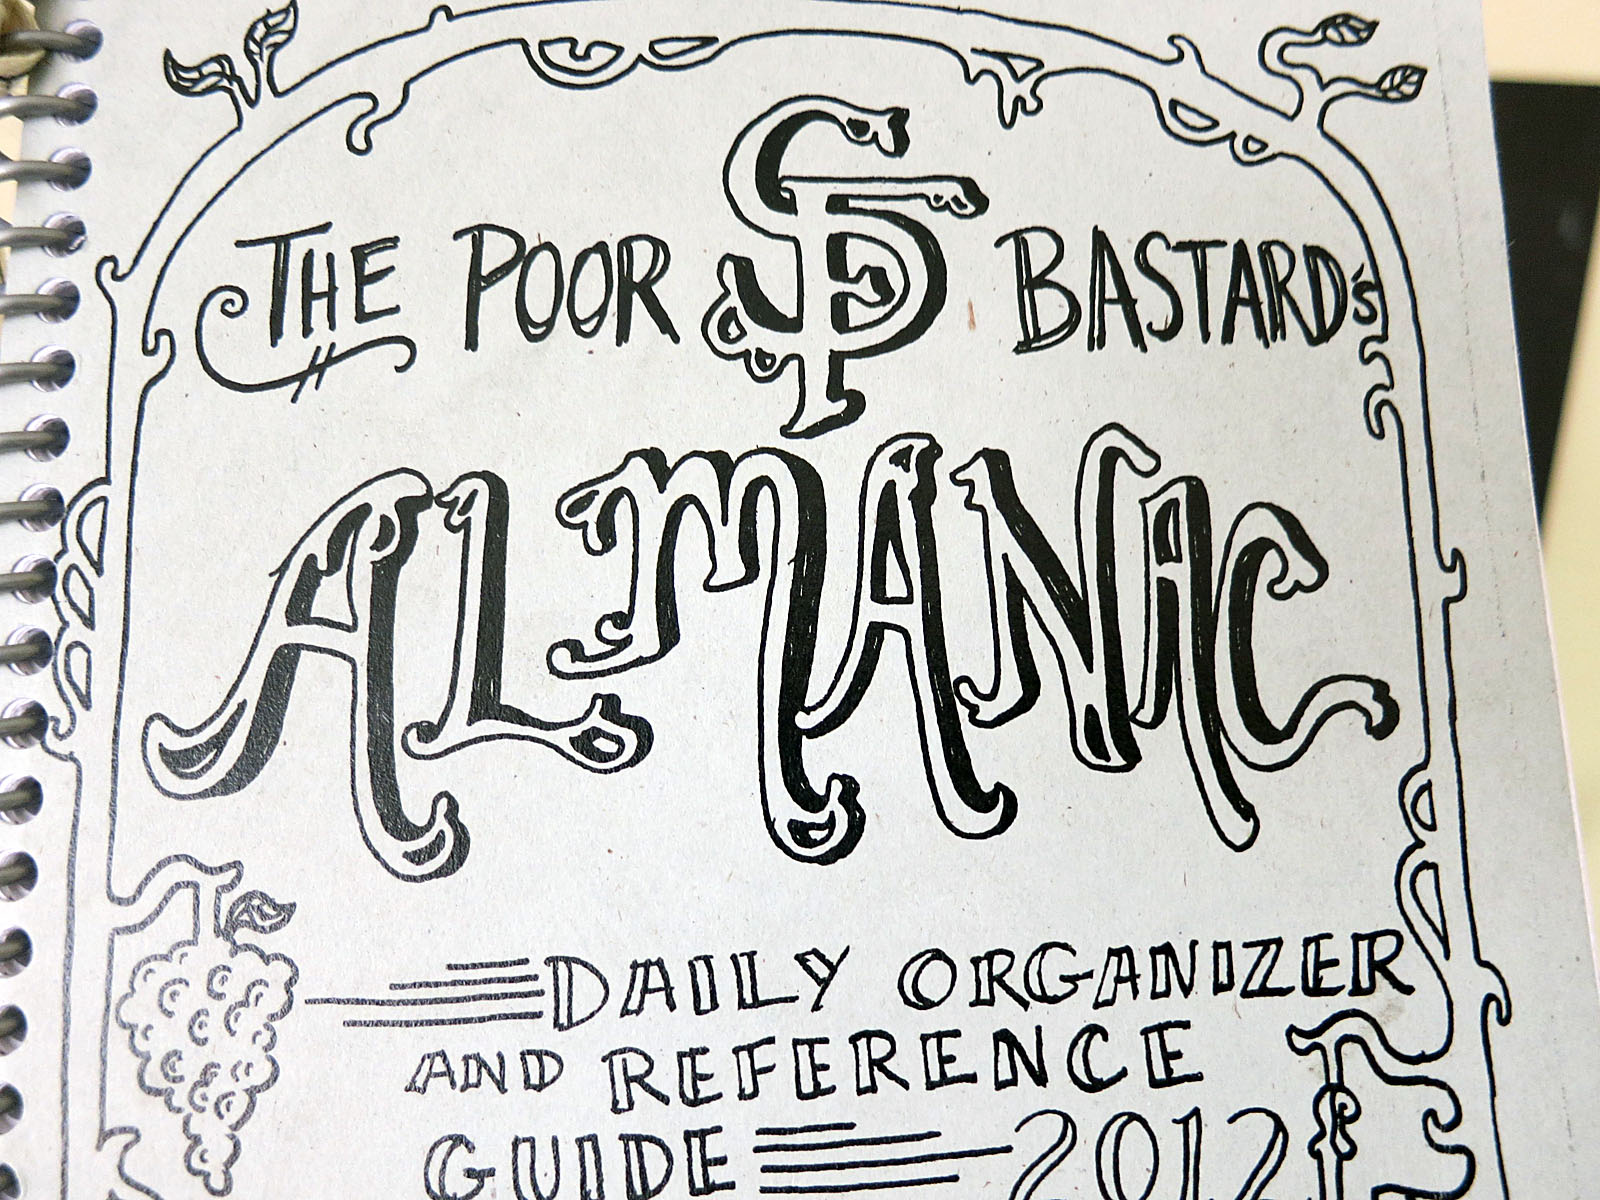 THE POOR BASTARD'S
ALMANAC
DAILY ORGANIZER
AND REFERENCE
GUIDE 2012